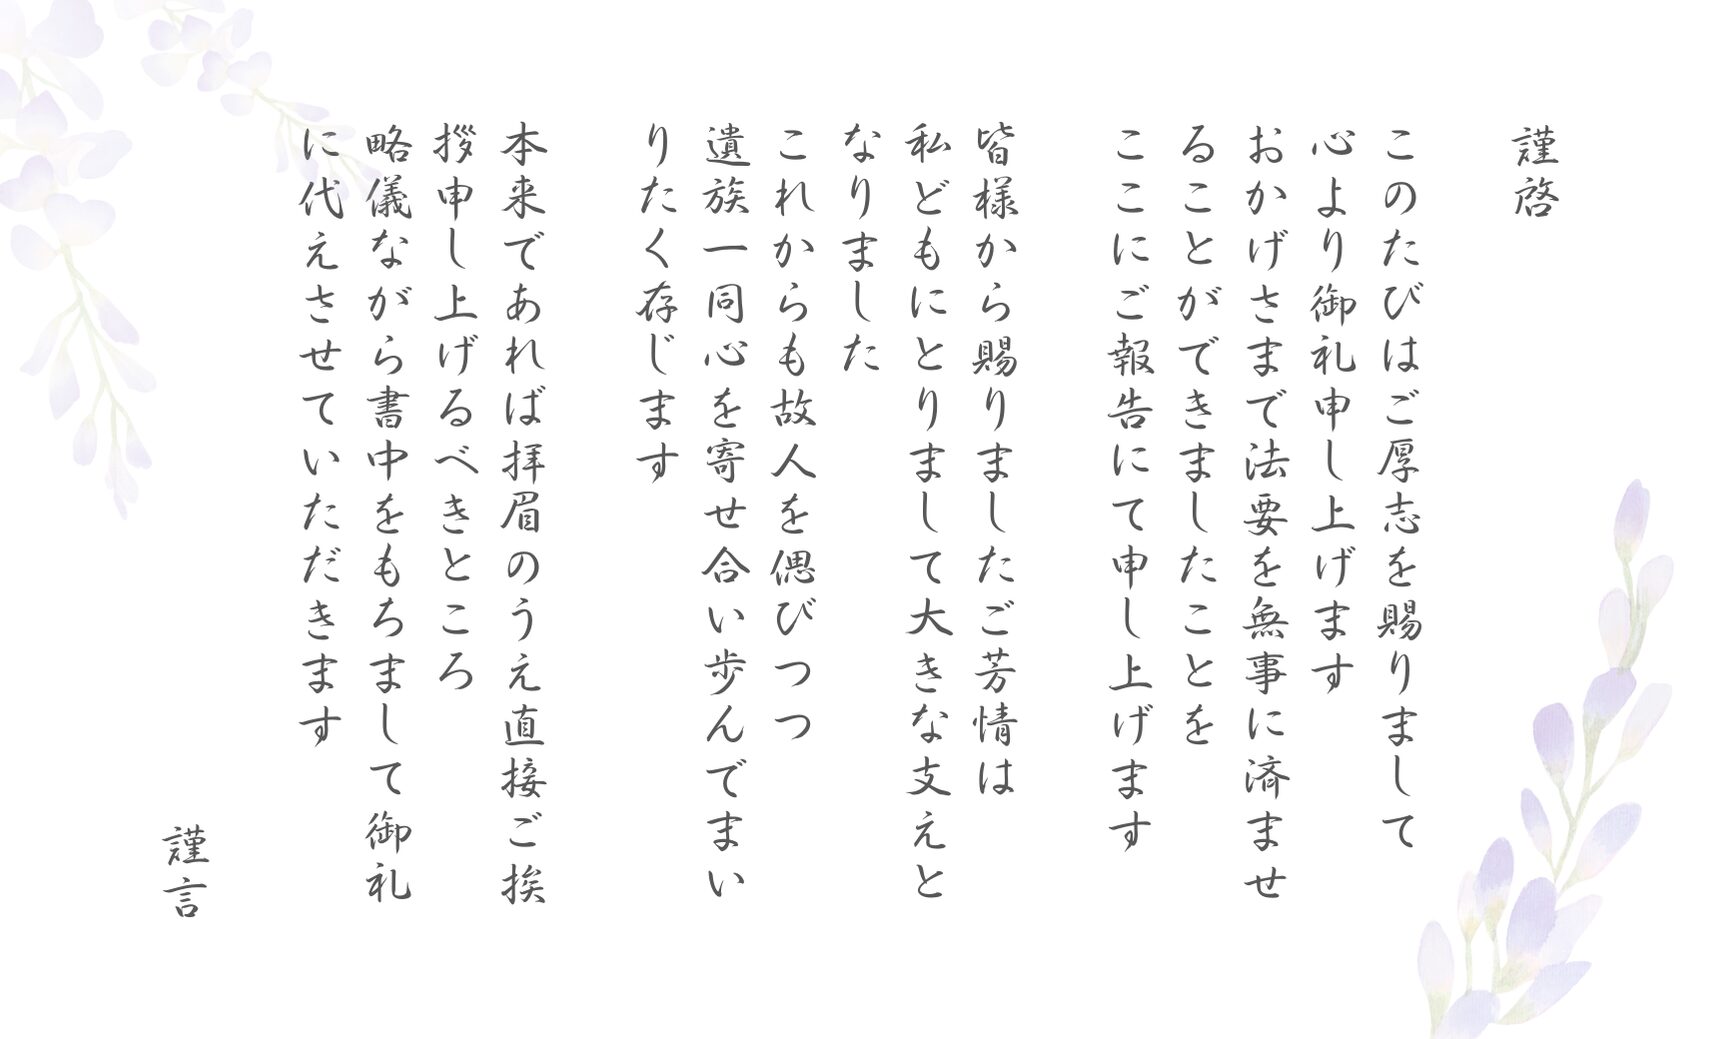 謹啓
このたびはご厚志を賜りまして
心より御礼申し上げます
おかげさまで法要を無事に済ませ
ることができましたことを
ここにご報告にて申し上げます
皆様から賜りましたご芳情は
私どもにとりまして大きな支えと
なりました
これからも故人を偲びつつ
遺族一同心を寄せ合い歩んでまい
りたく存じます
本来であれば拝眉のうえ直接ご挨
拶申し上げるべきところ
略儀ながら書中をもちまして御礼
に代えさせていただきます
謹言